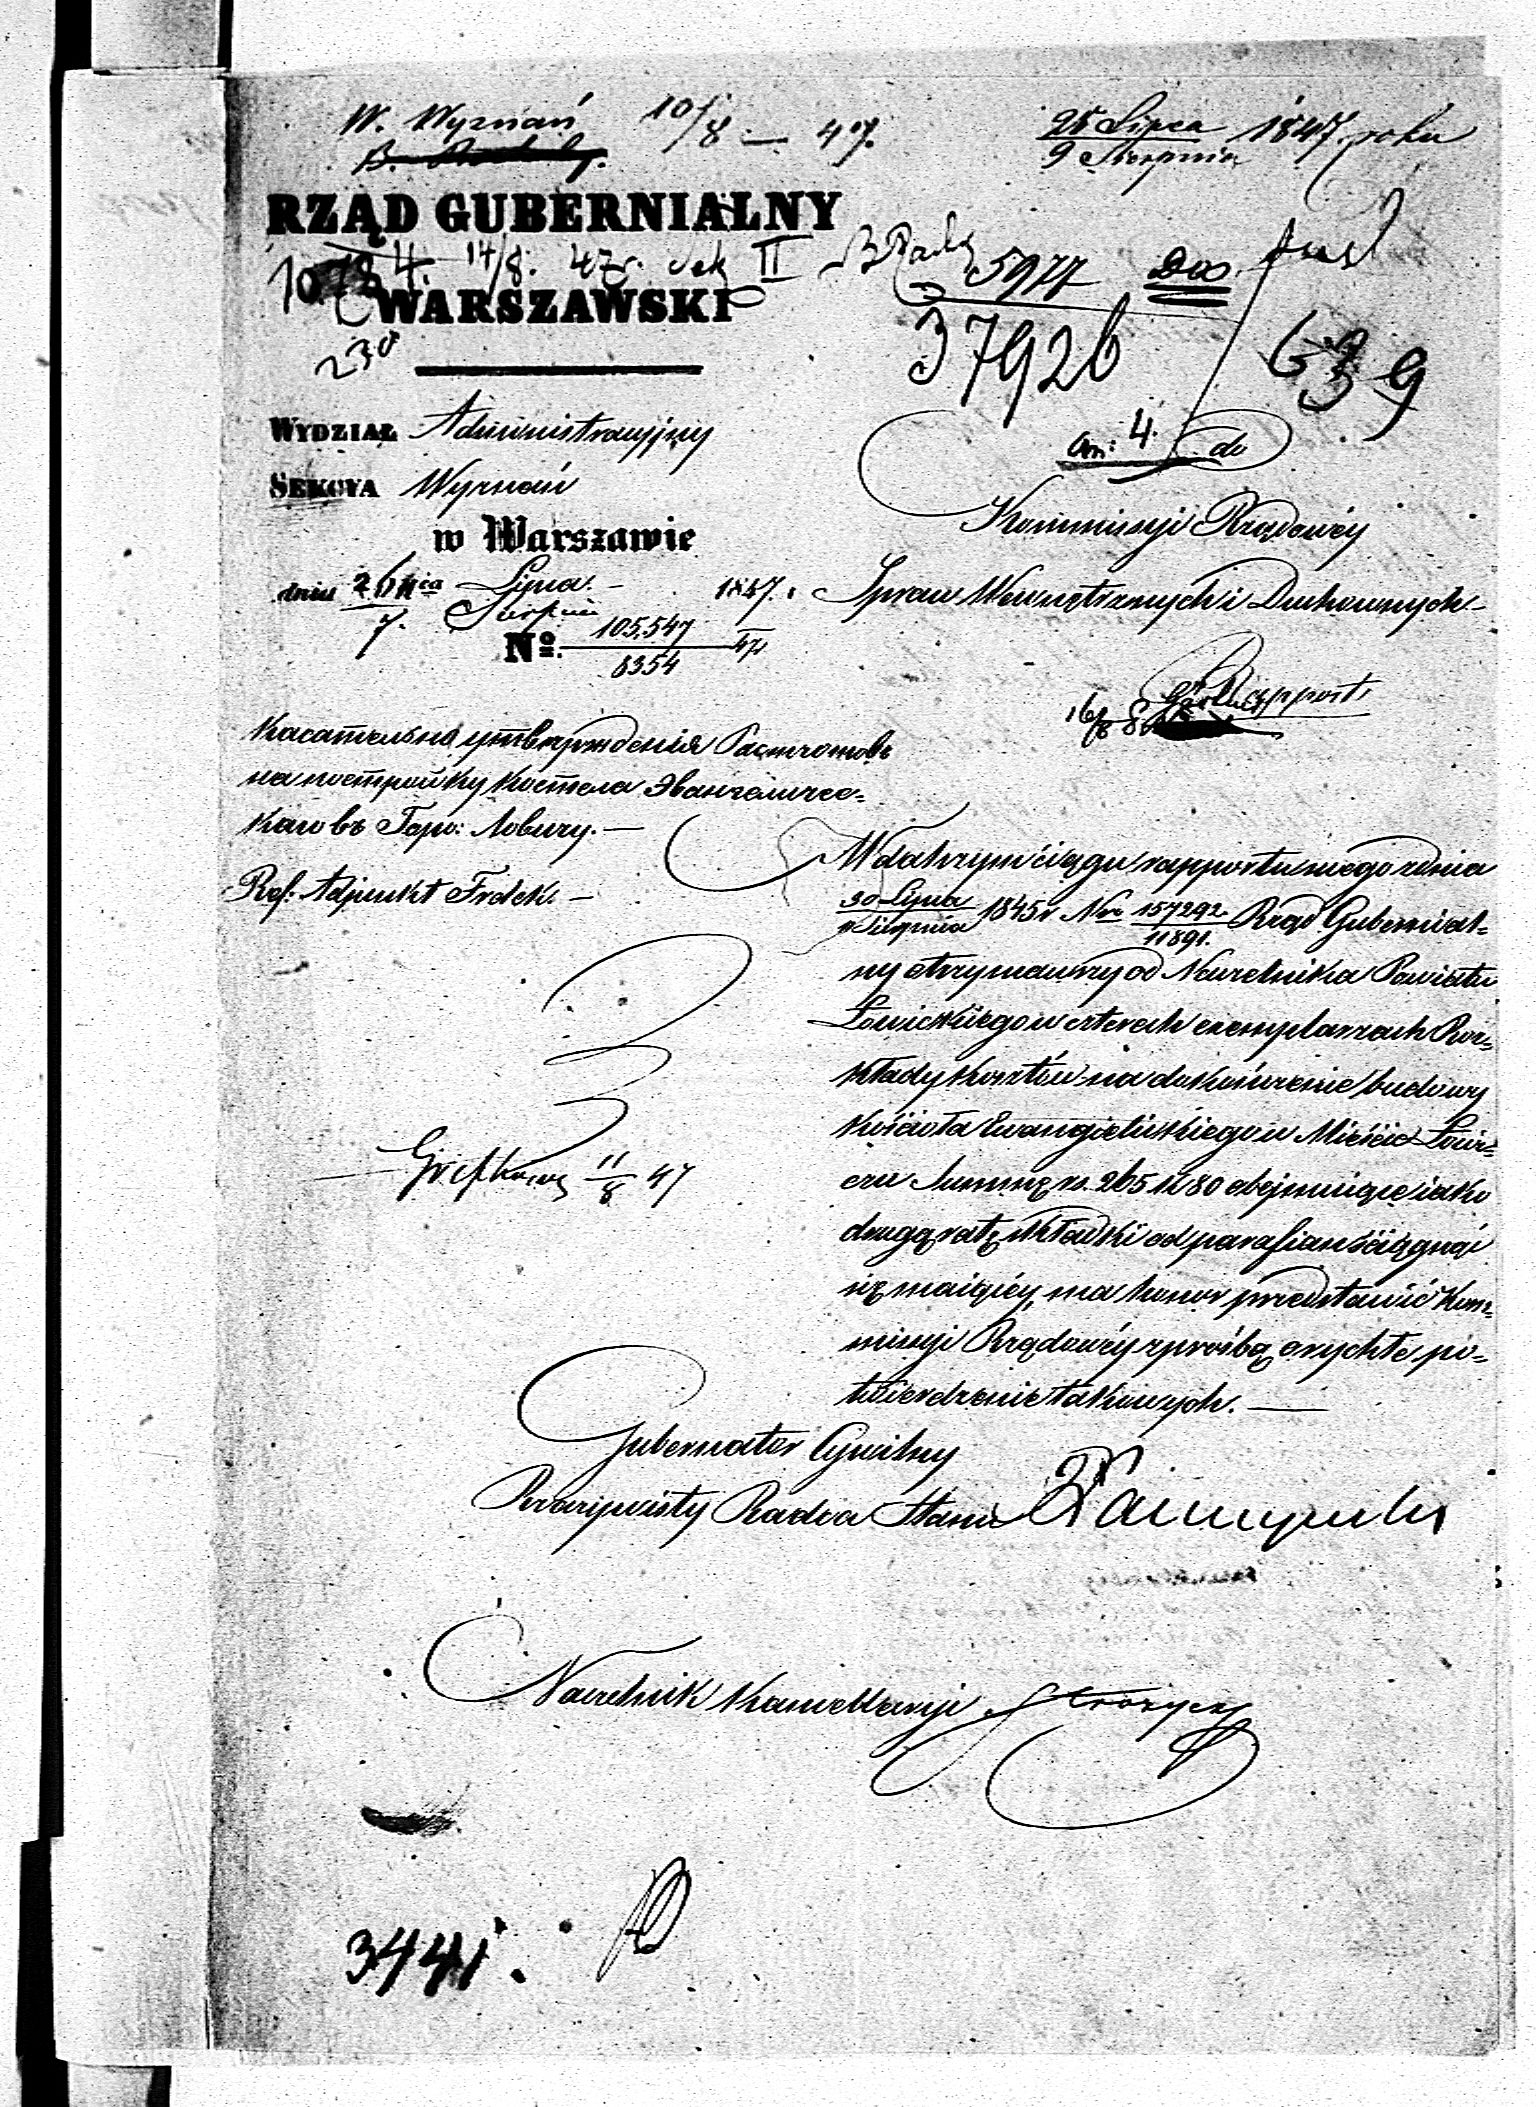 W. Wyznań 10/8 — 47.
25 Lipca
9 Sierpnia 1847 roku
RZĄD GUBERNIALNY
14/8. 47 r. Sek II
5977
WARSZAWSKI
37926
639
230
WYDZIAŁ Administracyjny
an: 4. do
SEKCYA Wyznań
Kommissyi Rządowéy
w Warszawie
Spraw Wewnętrznych i Duchownych
dnia 26 Lipca
7. Sierpnia 1847.
No. 105.547 / 8354 47
Rapport
16/8
Касательно утвержденія Разчетовъ
на постройку Костела Эвангеличес=
каго въ Горо: Ловичу. —
Ref: Adjunkt Frdek. —
W dalszym ciągu rapportu swego z dnia
30 Lipca
Sierpnia 1845 r Nro 157292 / 11891. Rząd Gubernial=
ny otrzymawszy od Naczelnika Powiatu
Łowickiego w czterech exemplarzach Roz=
kłady kosztów na dokończenie budowy
Kościoła Ewangelickiego w Mieście Łowi=
czu Summę rs. 265 k 80 obejmujące jako
drugą ratę składki od parafian ściągnąć
się maiącéy, ma honor przedstawić Kom=
missyi Rządowéy z prośbą o rychłe po=
twierdzenie takowych. —
11/8 47
Gubernator Cywilny
Rzeczywisty Radca Stanu
Naczelnik Kancellaryi
3441.